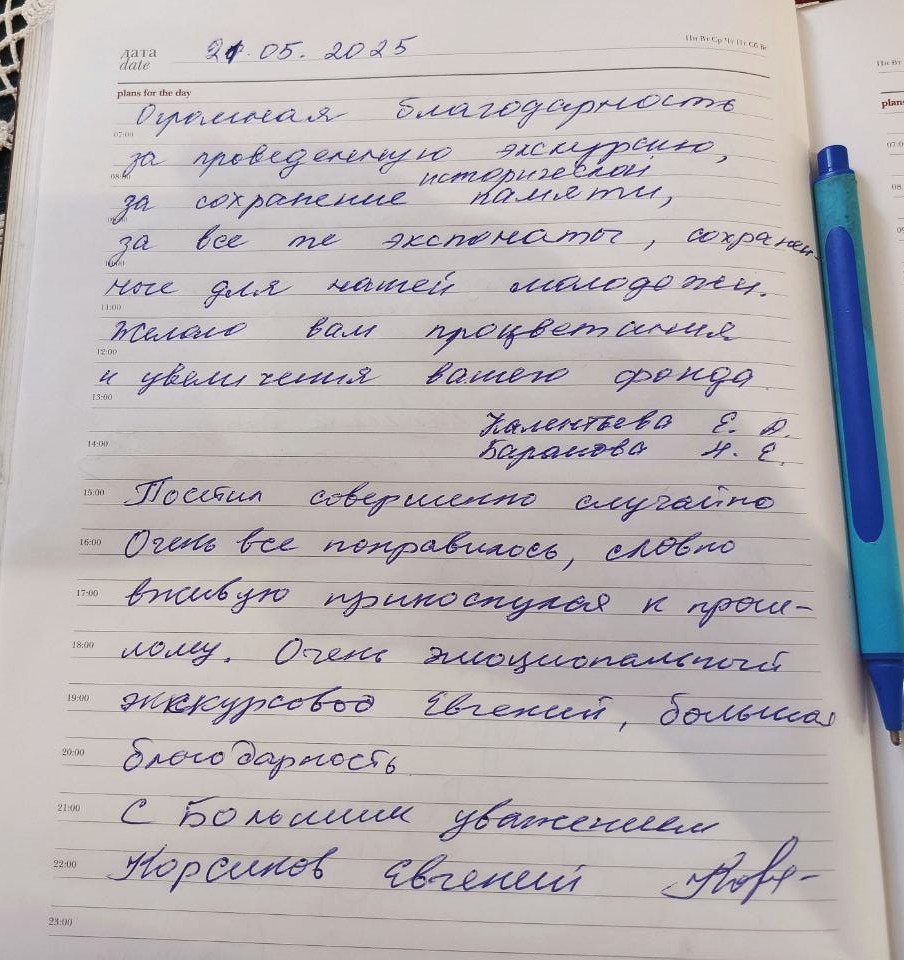 дата 21.05.2025 Пн Вт Ср Чт Пт Сб Вс
date
plans for the day
Огромная благодарность
07:00
за проведенную экскурсию,
08:00
исторической
за сохранение памяти,
09:00
за все те экспонаты, сохранен-
10:00
ные для нашей молодежи.
11:00
Желаю вам процветания
12:00
и увеличения вашего фонда
13:00
Калентьева Е. Д.
14:00 Баранова Н. Е.
15:00 Посетил совершенно случайно
16:00 Очень все понравилось, словно
17:00 вживую прикоснулся к прош-
18:00 лому. Очень эмоциональный
19:00 экскурсовод Евгений, большая
20:00 благодарность
21:00 С Большим уважением
22:00 Корсиков Евгений
23:00
Пн Вт
plans
07:0
08:
09